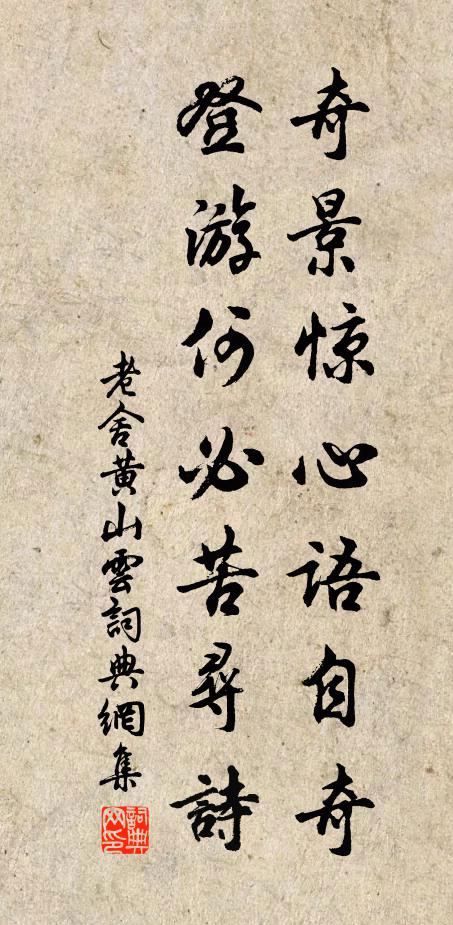 奇景惊心語自奇
登游何必苦尋詩
老舍黄山雲詞典網集
詞典网印